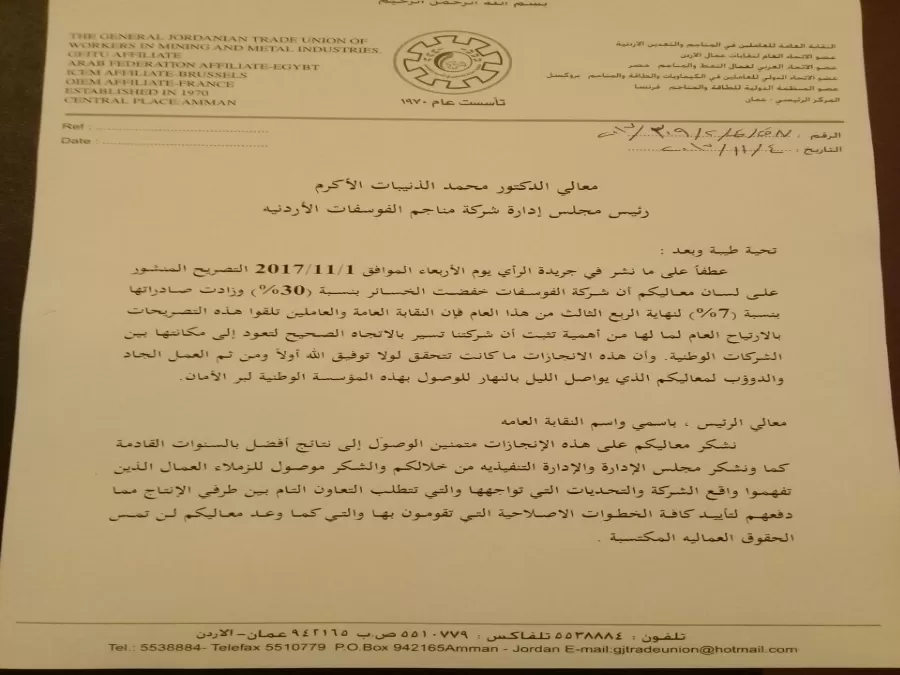 بسم الله الرحمن الرحيم
THE GENERAL JORDANIAN TRADE UNION OF
WORKERS IN MINING AND METAL INDUSTRIES.
GFJTU AFFILIATE
ARAB FEDERATION AFFILIATE-EGYPT
ICEM AFFILIATE-BRUSSELS
OIEM AFFILIATE-FRANCE
ESTABLISHED IN 1970
CENTRAL PLACE:AMMAN
تأسست عام ١٩٧٠
النقابة العامة للعاملين في المناجم والتعدين الاردنية
عضو الاتحاد العام لنقابات عمال الاردن
عضو الاتحاد العربي لعمال النفط والمناجم مصر
عضو الاتحاد الدولي للعاملين في الكيماويات والطاقة والمناجم بروكسل
عضو المنظمة الدولية للطاقة والمناجم فرنسا
المركز الرئيسي : عمان
Ref :
Date :
الرقم :
التاريخ :
معالي الدكتور محمد الذنيبات الأكرم
رئيس مجلس إدارة شركة مناجم الفوسفات الأردنيه
تحية طيبة وبعد :
عطفاً على ما نشر في جريدة الرأي يوم الأربعاء الموافق 2017/11/1 التصريح المنشور
على لسان معاليكم أن شركة الفوسفات خفضت الخسائر بنسبة (30%) وزادت صادراتها
بنسبة (7%) لنهاية الربع الثالث من هذا العام فإن النقابة العامة والعاملين تلقوا هذه التصريحات
بالارتياح العام لما لها من أهمية تثبت أن شركتنا تسير بالاتجاه الصحيح لتعود إلى مكانتها بين
الشركات الوطنية. وأن هذه الانجازات ما كانت تتحقق لولا توفيق الله أولاً ومن ثم العمل الجاد
والدوؤب لمعاليكم الذي يواصل الليل بالنهار للوصول بهذه المؤسسة الوطنية لبر الأمان.
معالي الرئيس ، باسمي واسم النقابة العامه
نشكر معاليكم على هذه الإنجازات متمنين الوصول إلى نتائج أفضل بالسنوات القادمة
كما ونشكر مجلس الإدارة والإدارة التنفيذيه من خلالكم والشكر موصول للزملاء العمال الذين
تفهموا واقع الشركة والتحديات التي تواجهها والتي تتطلب التعاون التام بين طرفي الإنتاج مما
دفعهم لتأييد كافة الخطوات الاصلاحية التي تقومون بها والتي كما وعد معاليكم لن تمس
الحقوق العماليه المكتسبة .
تلفون : ٥٥٣٨٨٨٤ تلفاكس : ٥٥١٠٧٧٩ ص.ب ٩٤٢١٦٥ عمان-الاردن
Tel.: 5538884- Telefax 5510779 P.O.Box 942165Amman - Jordan E-mail:gjtradeunion@hotmail.com